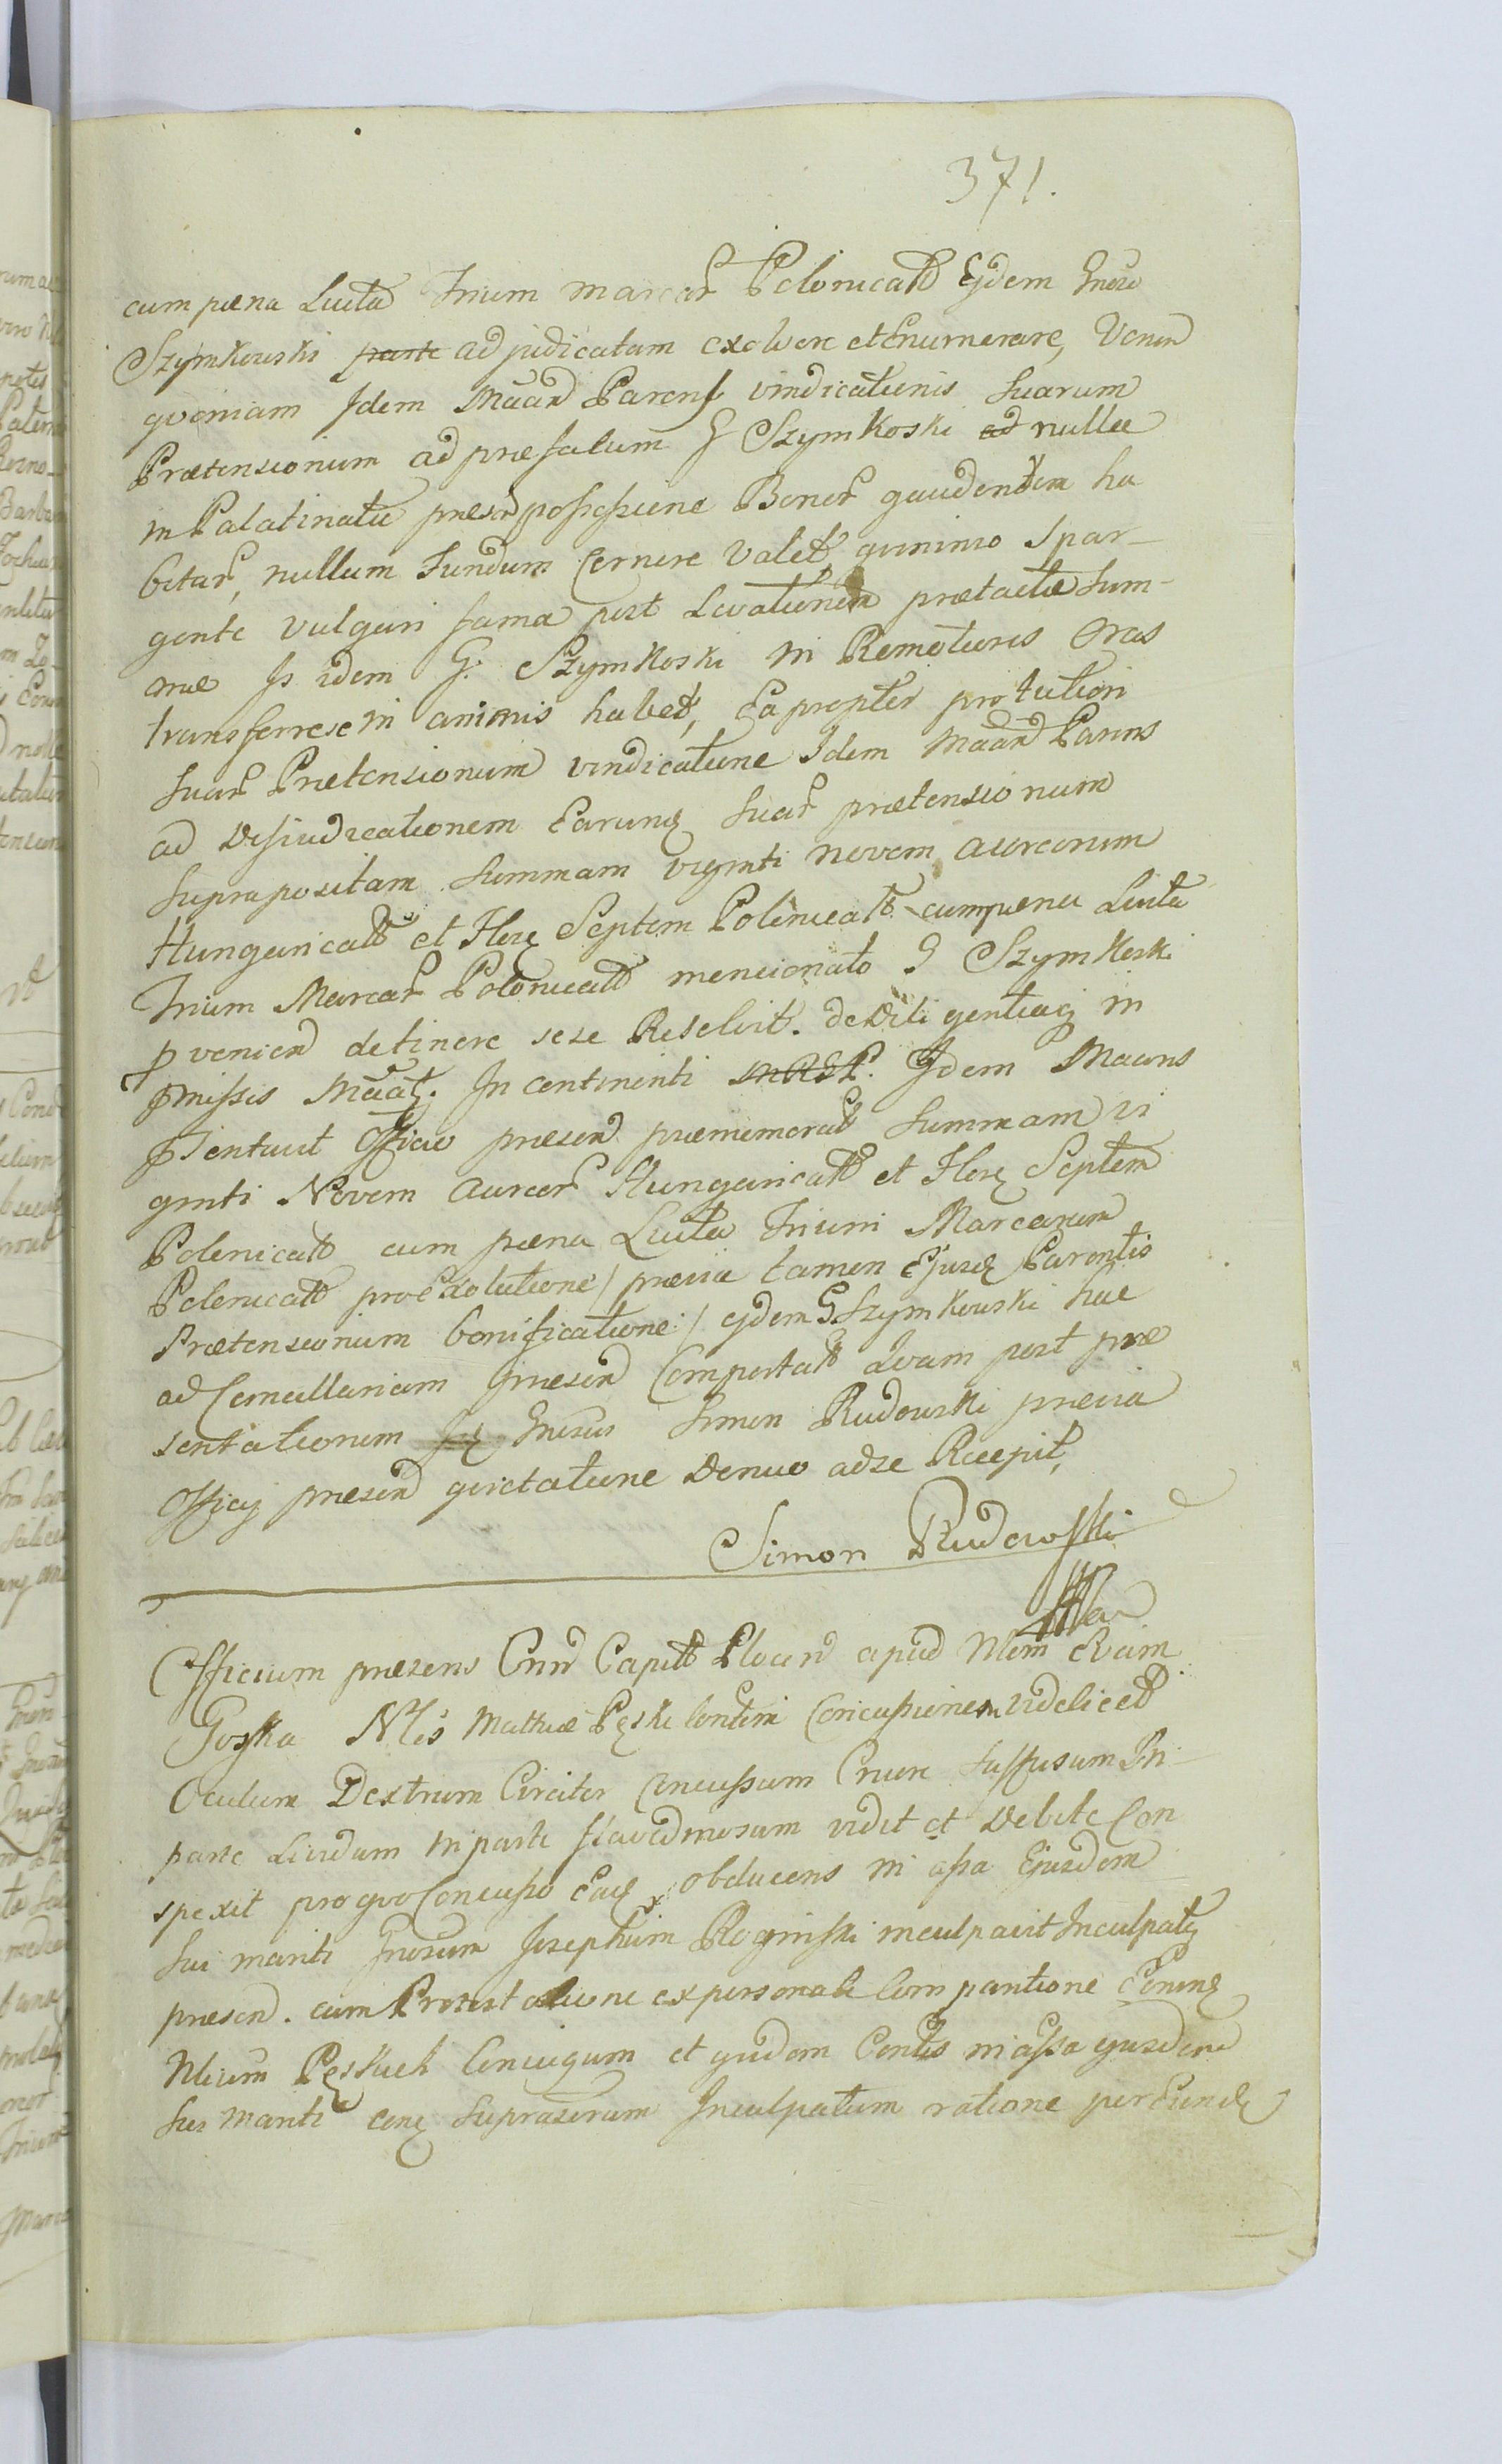 371.
cum pæna Luita Trium marcar Polonicall Ejdem Gneroso
Szymkowski parte adjudicatam exolvere et Enumerare, Verum
qvoniam Idem Maan Parens vindicationis suarum
Prætensionum ad præfatum G Szymkoski ad nullæ
in Palatinatu præsen possessione Bonor gaudentem ha
betur, nullum Fundum Cernere Valet, qvinimo Spar-
gente vulgari fama post Levationem prætactæ Sum-
mæ Is idem G. Szymkoski in Remotiores Oras
transferre se in animis habet, Eapropter pro tutiori
suar Prætensionum vindicatione Idem Maan Parens
ad Disiudicationem Earunq suar prætensionum
suprapositam Summam viginti novem aureorum
Hungaricall et Flore Septem Polonicall cum pæna Luita
Trium Marcar Polonicall mencionato G Szymkoski
pvenien detinere sese Resolvit. de Diligentiaq in
pmissis Maat. In continenti Idem Maans
psentavit Officio præsen præmemorat Summam vi
ginti Novem Aureor Hungaricall et Flore Septem
Polonicall cum pæna Luita Trium Marcarum
Polonicall pro Exolutione / prævia tamen Ejusd Parentis
Prætensionum bonificatione / ejdem G Szymkowski hue
ad Cancellariam præsen Comportat Qvam post præ
sentationem Gnrsus Simon Rudowski prævia
Officij præsen qvietatione Denuo ad se Recepit,
Simon Rudowski
Officium præsens Cnn Capitl Plocen apud Nlem Evam
Goska Nlis Mathiæ Peski Contem Concussionem videlicet
Oculum Dextrum Circiter Concussum Cruore suffusum In
parte Lividum in parte flavedinosum vidit et Debite Con
spexit pro qvo Concusso Eadq obducens in assa Ejusdem
sui mariti Gnosum Josephum Roginski inculpavit Inculpatq
præsen. cum Protestatione ex personali Comparitione Eoninq
Nlium Peskich Conjugum et qvidem Contis in assa ejusdem
sui mariti conq suprascrum Inculpatum ratione percunde